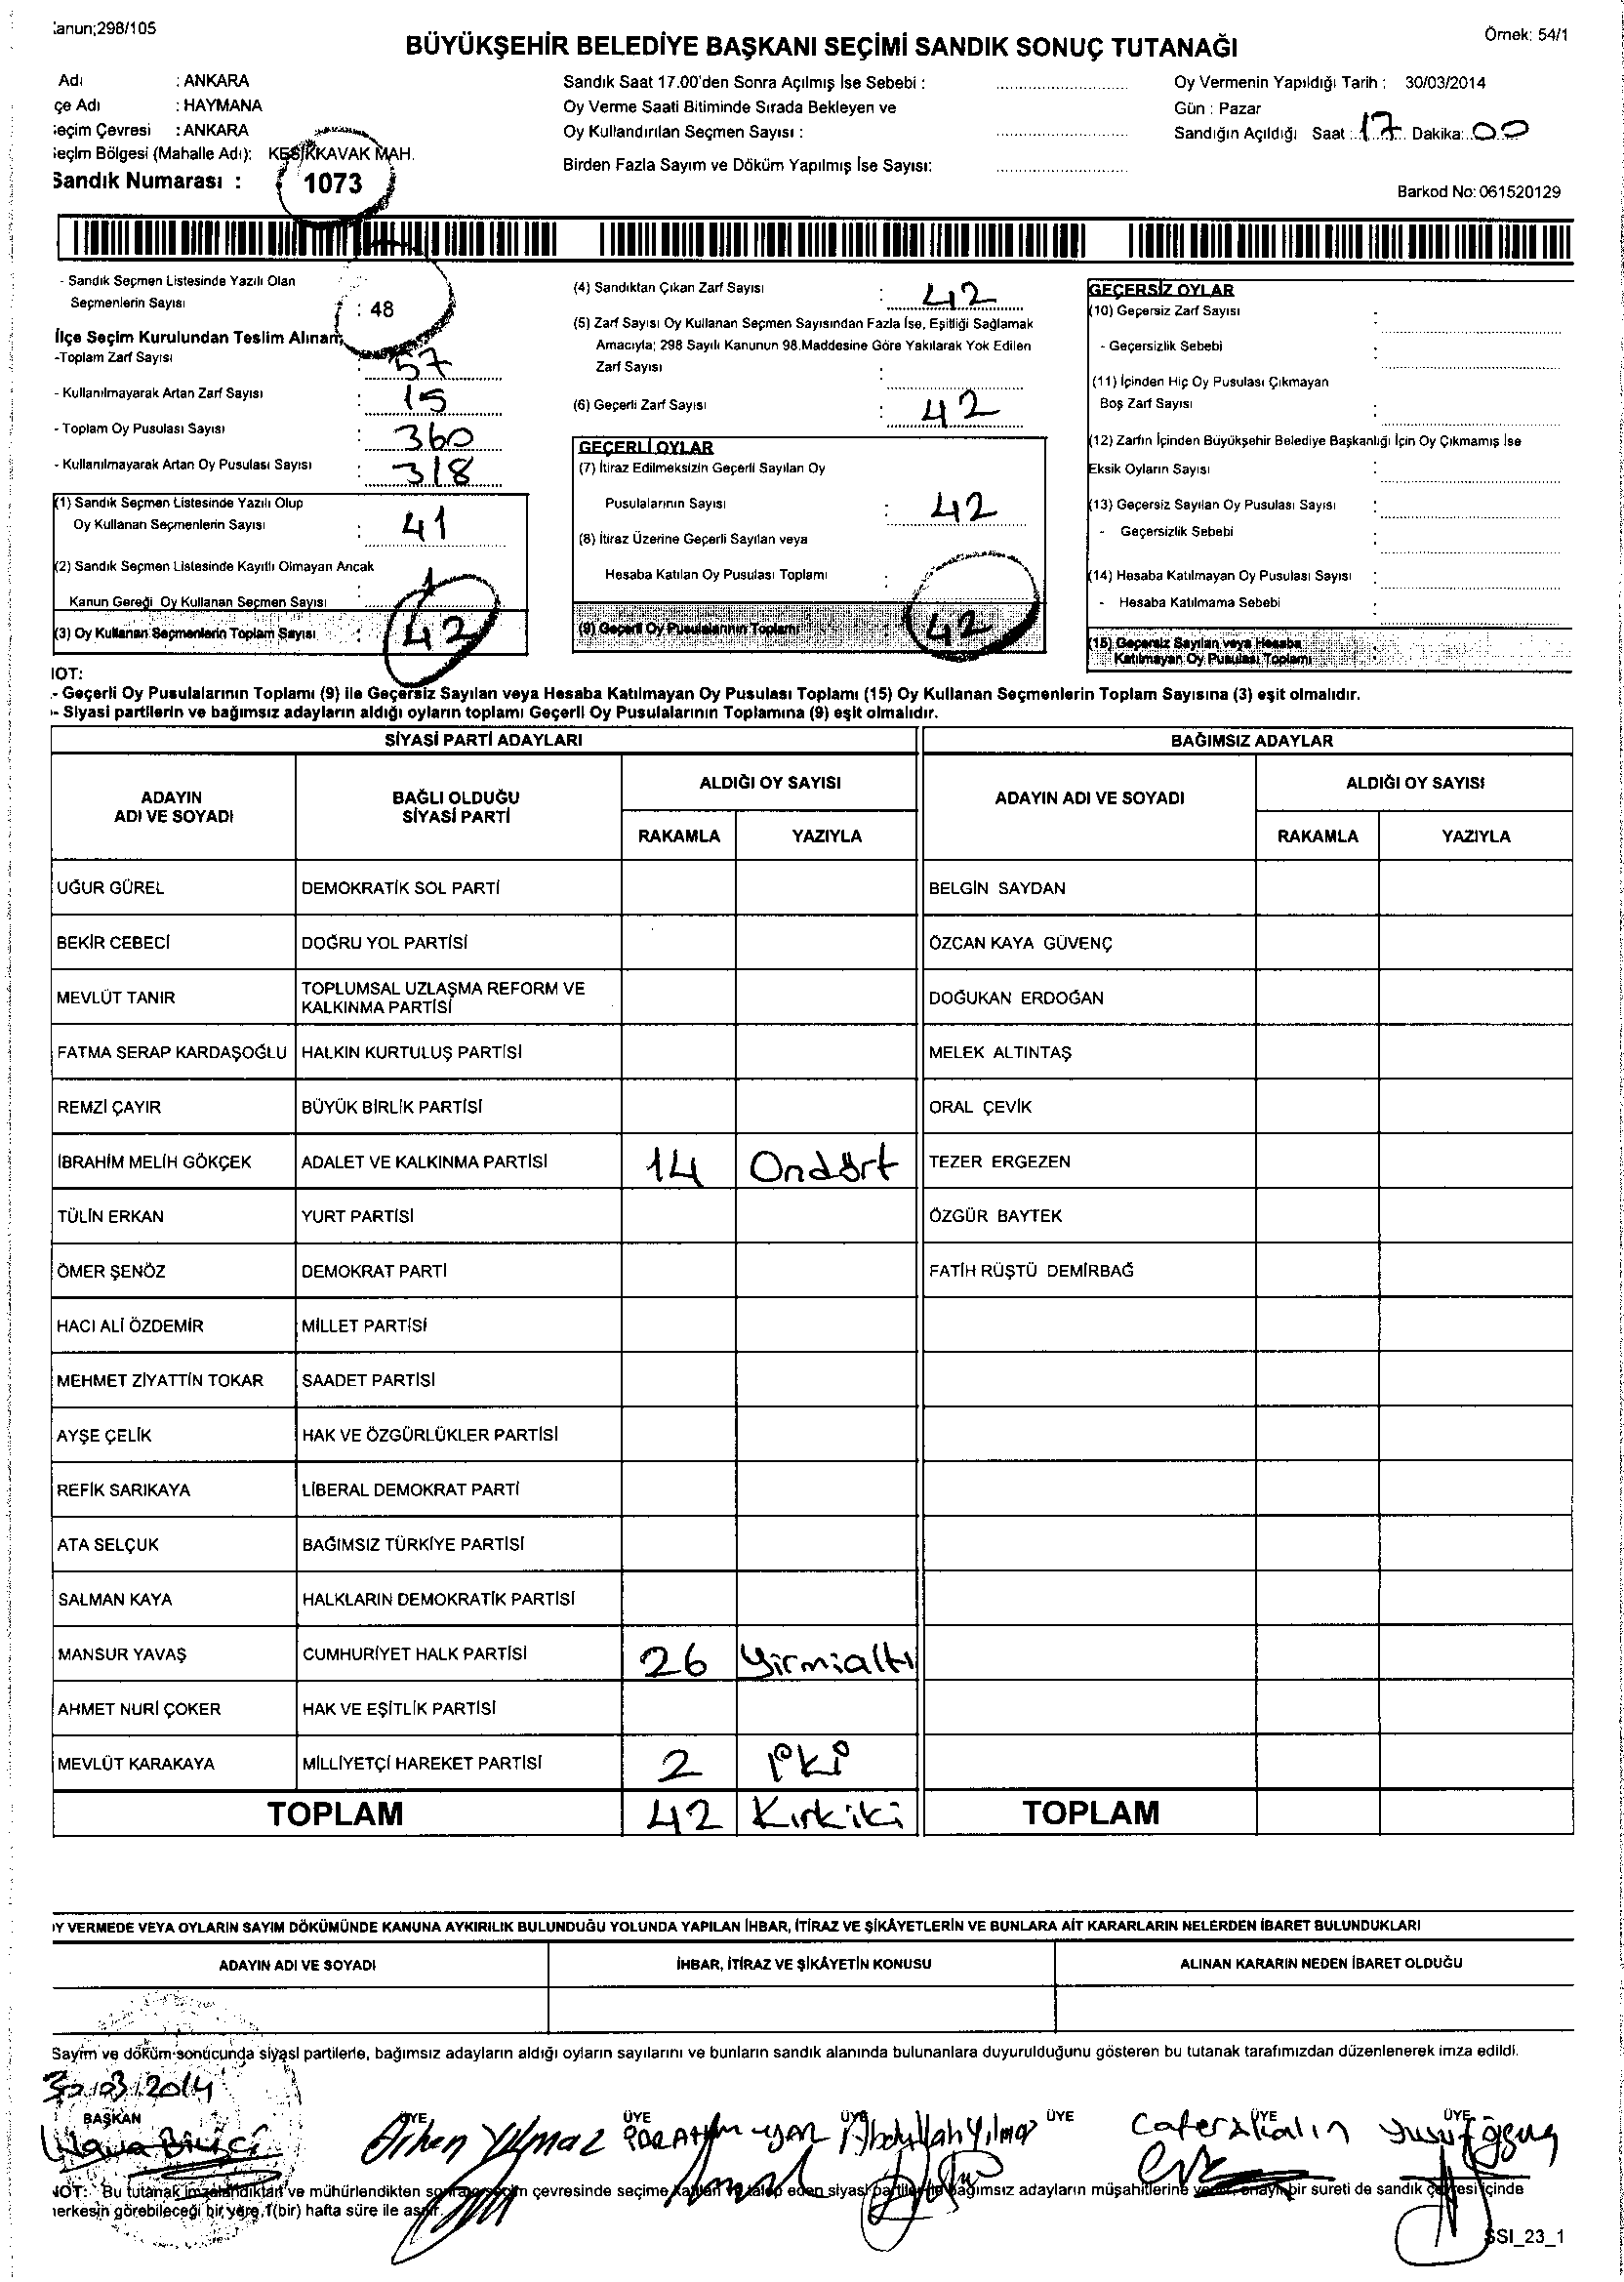 anun;298/105
Örnek: 54/1
BÜYÜKŞEHİR BELEDİYE BAŞKANI SEÇİMİ SANDIK SONUÇ TUTANAĞI
Adı : ANKARA
çe Adı : HAYMANA
eçim Çevresi : ANKARA
eçim Bölgesi (Mahalle Adı): KESİKKAVAK MAH.
Sandık Numarası : 1073
Sandık Saat 17.00'den Sonra Açılmış İse Sebebi :
Oy Verme Saati Bitiminde Sırada Bekleyen ve
Oy Kullandırılan Seçmen Sayısı :
Birden Fazla Sayım ve Döküm Yapılmış İse Sayısı:
Oy Vermenin Yapıldığı Tarih : 30/03/2014
Gün : Pazar
Sandığın Açıldığı Saat : 17 Dakika: 00
Barkod No: 061520129
- Sandık Seçmen Listesinde Yazılı Olan
Seçmenlerin Sayısı : 48
İlçe Seçim Kurulundan Teslim Alınan
-Toplam Zarf Sayısı : 57
- Kullanılmayarak Artan Zarf Sayısı : 15
- Toplam Oy Pusulası Sayısı : 360
- Kullanılmayarak Artan Oy Pusulası Sayısı : 318
(1) Sandık Seçmen Listesinde Yazılı Olup
Oy Kullanan Seçmenlerin Sayısı : 41
(2) Sandık Seçmen Listesinde Kayıtlı Olmayan Ancak
Kanun Gereği Oy Kullanan Seçmen Sayısı : 1
(3) Oy Kullanan Seçmenlerin Toplam Sayısı : 42
(4) Sandıktan Çıkan Zarf Sayısı : 42
(5) Zarf Sayısı Oy Kullanan Seçmen Sayısından Fazla İse, Eşitliği Sağlamak
Amacıyla; 298 Sayılı Kanunun 98.Maddesine Göre Yakılarak Yok Edilen
Zarf Sayısı :
(6) Geçerli Zarf Sayısı : 42
GEÇERLİ OYLAR
(7) İtiraz Edilmeksizin Geçerli Sayılan Oy
Pusulalarının Sayısı : 42
(8) İtiraz Üzerine Geçerli Sayılan veya
Hesaba Katılan Oy Pusulası Toplamı :
(9) Geçerli Oy Pusulalarının Toplamı : 42
GEÇERSİZ OYLAR
(10) Geçersiz Zarf Sayısı :
- Geçersizlik Sebebi :
(11) İçinden Hiç Oy Pusulası Çıkmayan
Boş Zarf Sayısı :
(12) Zarfın İçinden Büyükşehir Belediye Başkanlığı İçin Oy Çıkmamış İse
Eksik Oyların Sayısı :
(13) Geçersiz Sayılan Oy Pusulası Sayısı :
- Geçersizlik Sebebi :
(14) Hesaba Katılmayan Oy Pusulası Sayısı :
- Hesaba Katılmama Sebebi :
(15) Geçersiz Sayılan veya Hesaba
Katılmayan Oy Pusulası Toplamı :
IOT:
- Geçerli Oy Pusulalarının Toplamı (9) ile Geçersiz Sayılan veya Hesaba Katılmayan Oy Pusulası Toplamı (15) Oy Kullanan Seçmenlerin Toplam Sayısına (3) eşit olmalıdır.
- Siyasi partilerin ve bağımsız adayların aldığı oyların toplamı Geçerli Oy Pusulalarının Toplamına (9) eşit olmalıdır.
SİYASİ PARTİ ADAYLARI BAĞIMSIZ ADAYLAR
ADAYIN ADI VE SOYADI BAĞLI OLDUĞU SİYASİ PARTİ ALDIĞI OY SAYISI ADAYIN ADI VE SOYADI ALDIĞI OY SAYISI
RAKAMLA YAZIYLA RAKAMLA YAZIYLA
UĞUR GÜREL DEMOKRATİK SOL PARTİ BELGİN SAYDAN
BEKİR CEBECİ DOĞRU YOL PARTİSİ ÖZCAN KAYA GÜVENÇ
MEVLÜT TANIR TOPLUMSAL UZLAŞMA REFORM VE KALKINMA PARTİSİ DOĞUKAN ERDOĞAN
FATMA SERAP KARDAŞOĞLU HALKIN KURTULUŞ PARTİSİ MELEK ALTINTAŞ
REMZİ ÇAYIR BÜYÜK BİRLİK PARTİSİ ORAL ÇEVİK
İBRAHİM MELİH GÖKÇEK ADALET VE KALKINMA PARTİSİ 14 Ondört TEZER ERGEZEN
TÜLİN ERKAN YURT PARTİSİ ÖZGÜR BAYTEK
ÖMER ŞENÖZ DEMOKRAT PARTİ FATİH RÜŞTÜ DEMİRBAĞ
HACI ALİ ÖZDEMİR MİLLET PARTİSİ
MEHMET ZİYATTİN TOKAR SAADET PARTİSİ
AYŞE ÇELİK HAK VE ÖZGÜRLÜKLER PARTİSİ
REFİK SARIKAYA LİBERAL DEMOKRAT PARTİ
ATA SELÇUK BAĞIMSIZ TÜRKİYE PARTİSİ
SALMAN KAYA HALKLARIN DEMOKRATİK PARTİSİ
MANSUR YAVAŞ CUMHURİYET HALK PARTİSİ 26 Yirmialtı
AHMET NURİ ÇOKER HAK VE EŞİTLİK PARTİSİ
MEVLÜT KARAKAYA MİLLİYETÇİ HAREKET PARTİSİ 2 iki
TOPLAM 42 Kırkiki TOPLAM
Y VERMEDE VEYA OYLARIN SAYIM DÖKÜMÜNDE KANUNA AYKIRILIK BULUNDUĞU YOLUNDA YAPILAN İHBAR, İTİRAZ VE ŞİKÂYETLERİN VE BUNLARA AİT KARARLARIN NELERDEN İBARET BULUNDUKLARI
ADAYIN ADI VE SOYADI İHBAR, İTİRAZ VE ŞİKÂYETİN KONUSU ALINAN KARARIN NEDEN İBARET OLDUĞU
Sayım ve döküm sonucunda siyasi partilerle, bağımsız adayların aldığı oyların sayılarını ve bunların sandık alanında bulunanlara duyurulduğunu gösteren bu tutanak tarafımızdan düzenlenerek imza edildi.
30.03.2014
BAŞKAN ÜYE ÜYE ÜYE ÜYE ÜYE ÜYE
Yılmaz Abdullah Yılmaz Cafer Yusuf
NOT: Bu tutanak imzalandıktan ve mühürlendikten sonra seçim çevresinde seçime katılan ve talep eden siyasi partiler ve bağımsız adayların müşahitlerine verilir, onaylı bir sureti de sandık çevresi içinde
herkesin görebileceği bir yere 1(bir) hafta süre ile asılır.
SSI_23_1